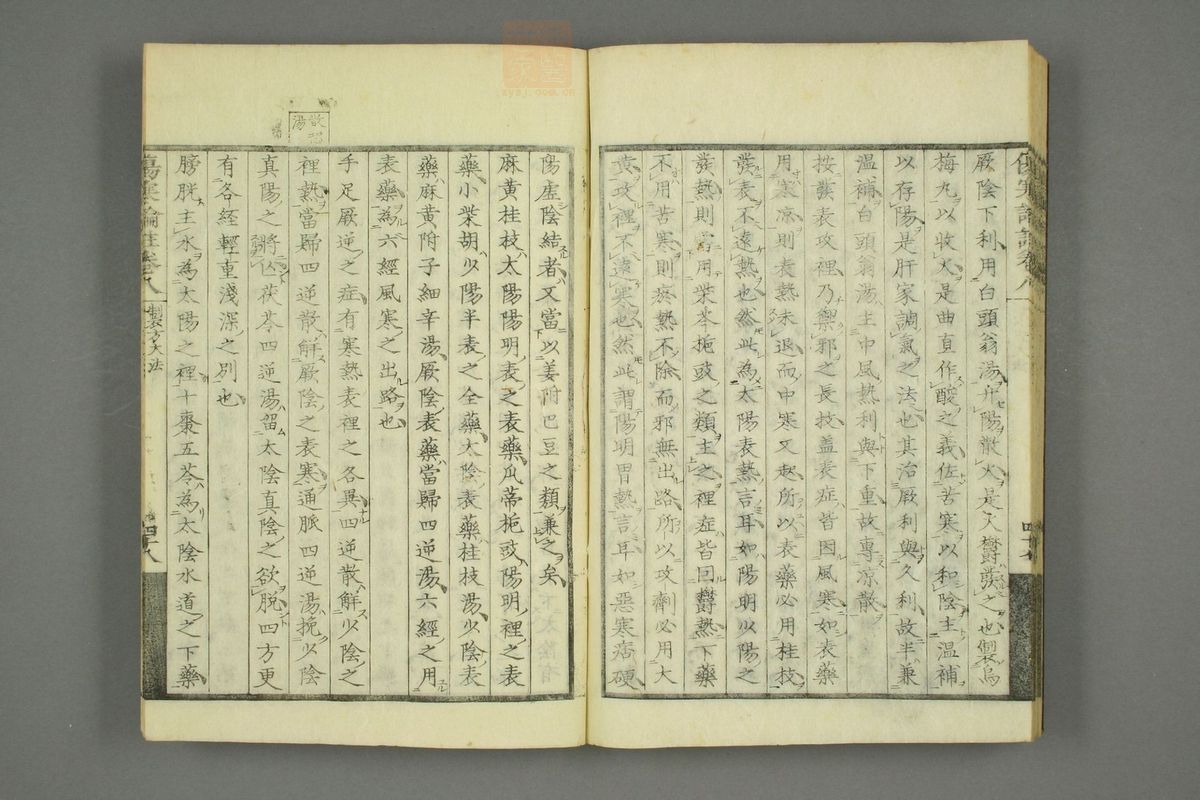 厥陰下利用白頭翁湯升陽散火是火欝發之也製烏
梅丸以收火是曲直作酸之義佐苦寒以和陰主溫補
以存陽是肝家調氣之法也其治厥利與久利故半兼
溫補白頭翁湯主中風熱利與下重故專凉散
按發表攻裡乃禦邪之長技蓋表症皆因風寒如表藥
用寒凉則表熱未退而中寒又起所以表藥必用桂枝
發表不遠熱也然此為太陽表熱言耳如陽明少陽之
發熱則當用柴芩梔豉之類主之裡症皆因欝熱下藥
不用苦寒則瘀熱不除而邪無出路所以攻劑必用大
黃攻裡不遠寒也然此謂陽明胃熱言耳如惡寒痞硬
陽虛陰結者又當以姜附巴豆之類兼之矣
麻黃桂枝太陽陽明表之表藥瓜蒂梔豉陽明裡之表
藥小柴胡少陽半表之全藥太陰表藥桂枝湯少陰表
藥麻黃附子細辛湯厥陰表藥當歸四逆湯六經之用
表藥為六經風寒之出路也
手足厥逆之症有寒熱表裡之各異四逆散解少陰之
裡熱當歸四逆散解厥陰之表寒通脈四逆湯挽少陰
真陽之將亡茯苓四逆湯留太陰真陰之欲脫四方更
有各經輕重淺深之別也
膀胱主水為太陽之裡十棗五苓為太陰水道之下藥
傷寒論註卷八
製方大法
四十八